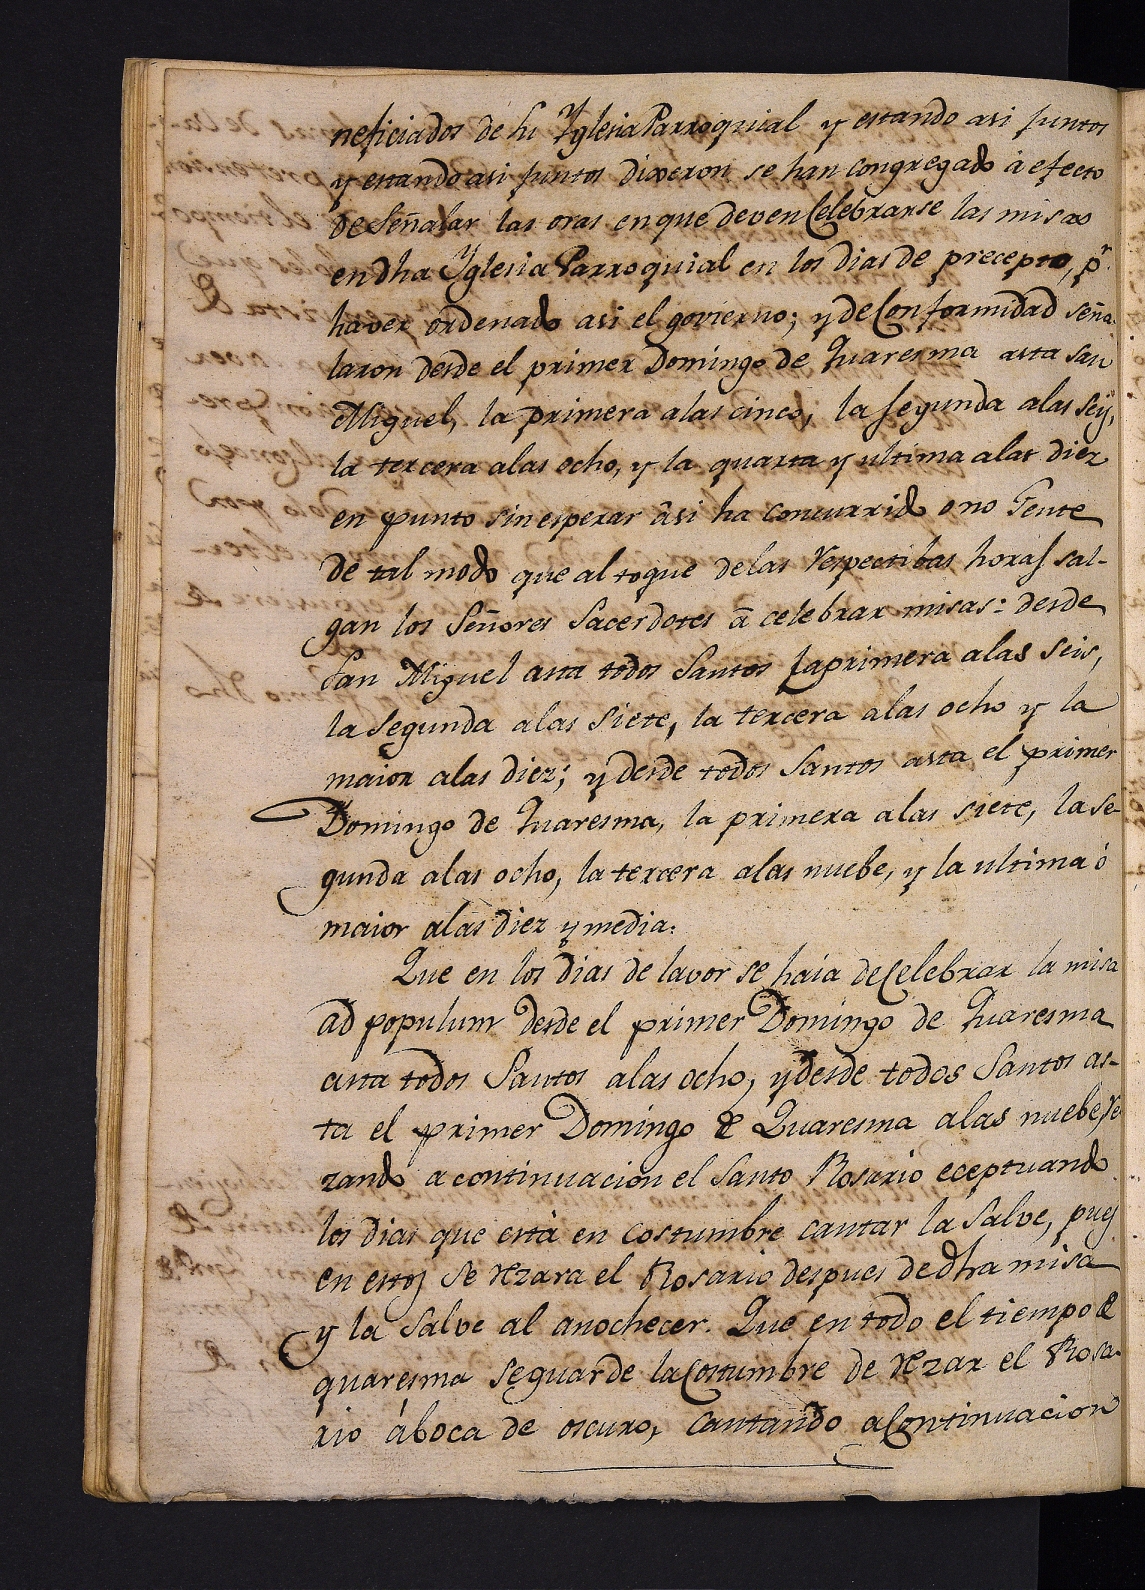 neficiados de su Yglesia Parroquial y estando asi juntos
y estando asi juntos dixeron se han congregado à efecto
de Señalar las oras en que deven Celebrarse las misas
en dha Yglesia Parroquial en los dias de precepto, pr.
haver ordenado asi el govierno; y de Conformidad seña-
laron desde el primer Domingo de Quaresma asta san
Miguel, la primera a las cinco, la segunda a las seis,
la tercera a las ocho, y la quarta y ultima a las diez
en punto sin esperar âsi ha concurrido o no Gente
de tal modo que al toque de las respectibas horas sal-
gan los Señores Sacerdotes â celebrar misas: desde
San Miguel asta todos Santos la primera a las seis,
la segunda a las siete, la tercera a las ocho y la
maior a las diez; y desde todos Santos asta el primer
Domingo de Quaresma, la primera a las siete, la se-
gunda a las ocho, la tercera a las nuebe, y la ultima ó
maior a las diez y media.
Que en los dias de lavor se haia de Celebrar la misa
ad populum desde el primer Domingo de Quaresma
asta todos Santos a las ocho, y desde todos Santos as-
ta el primer Domingo de Quaresma a las nuebe, re-
zando a continuacion el Santo Rosario eceptuando
los dias que està en costumbre cantar la Salve, pues
en estos se rezara el Rosario despues de dha misa
y la Salve al anochecer. Que en todo el tiempo de
quaresma se guarde la Costumbre de rezar el Rosa-
rio áboca de oscuro, cantando a Continuacion